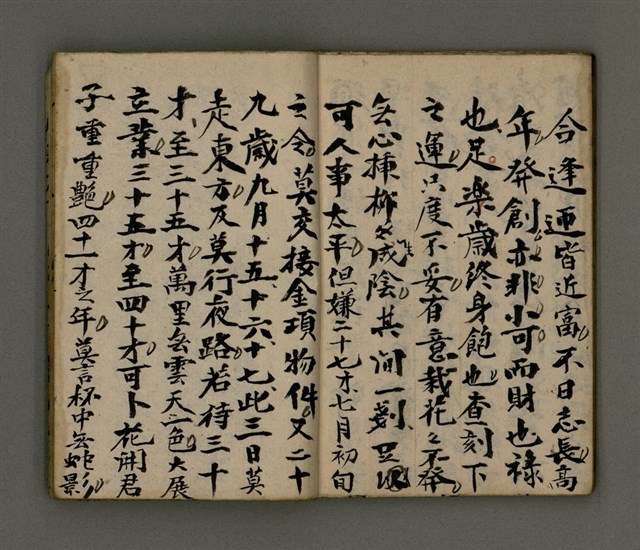 合逢迊皆近富不日志長高
年發創亦非小可而財也祿
也足楽歲終身飽也查刻下
之運只度不妥有意栽花〻不發
無心插柳〻成陰其间一刻
可人事太平但嫌二十七才七月初旬
之令莫交接金項物件又二十
九歲九月十五十六十七此三日莫
走東方及莫行夜路若待三十
才至三十五才萬里無雲天一色大展
立業三十五才至四十才可卜花開君
子重重艶四十一才之年莫言杯中無蛇影